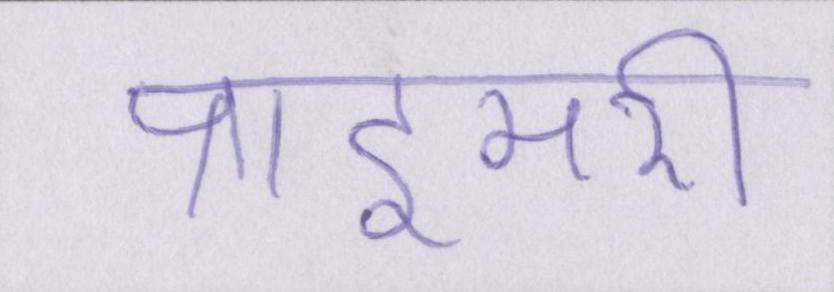 प्राइमरी